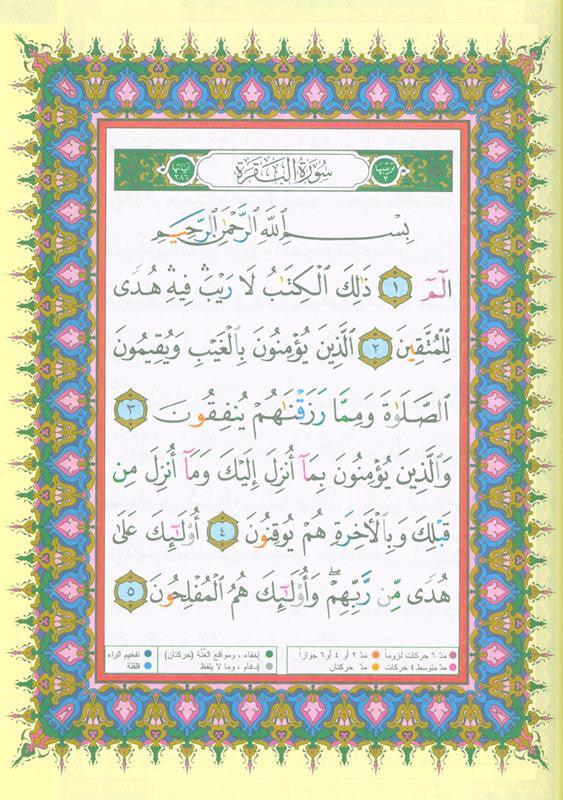 ترتيبها ٢ سُورَةُ الْبَقَرَةِ آياتها ٢٨٦
بِسْمِ اللَّهِ الرَّحْمَٰنِ الرَّحِيمِ
الٓمٓ ١ ذَٰلِكَ الْكِتَابُ لَا رَيْبَ ۛ فِيهِ ۛ هُدًى
لِّلْمُتَّقِينَ ٢ الَّذِينَ يُؤْمِنُونَ بِالْغَيْبِ وَيُقِيمُونَ
الصَّلَوٰةَ وَمِمَّا رَزَقْنَٰهُمْ يُنفِقُونَ ٣
وَالَّذِينَ يُؤْمِنُونَ بِمَآ أُنزِلَ إِلَيْكَ وَمَآ أُنزِلَ مِن
قَبْلِكَ وَبِالْآخِرَةِ هُمْ يُوقِنُونَ ٤ أُولَٰٓئِكَ عَلَىٰ
هُدًى مِّن رَّبِّهِمْ ۖ وَأُولَٰٓئِكَ هُمُ الْمُفْلِحُونَ ٥
مدّ ٦ حركات لزوماً مدّ ٢ أو ٤ أو ٦ جوازاً إخفاء ، ومواقع الغُنَّة (حركتان) تفخيم الراء
مدّ متوسط ٤ حركات مدّ حركتان إدغام ، وما لا يلفظ قلقلة